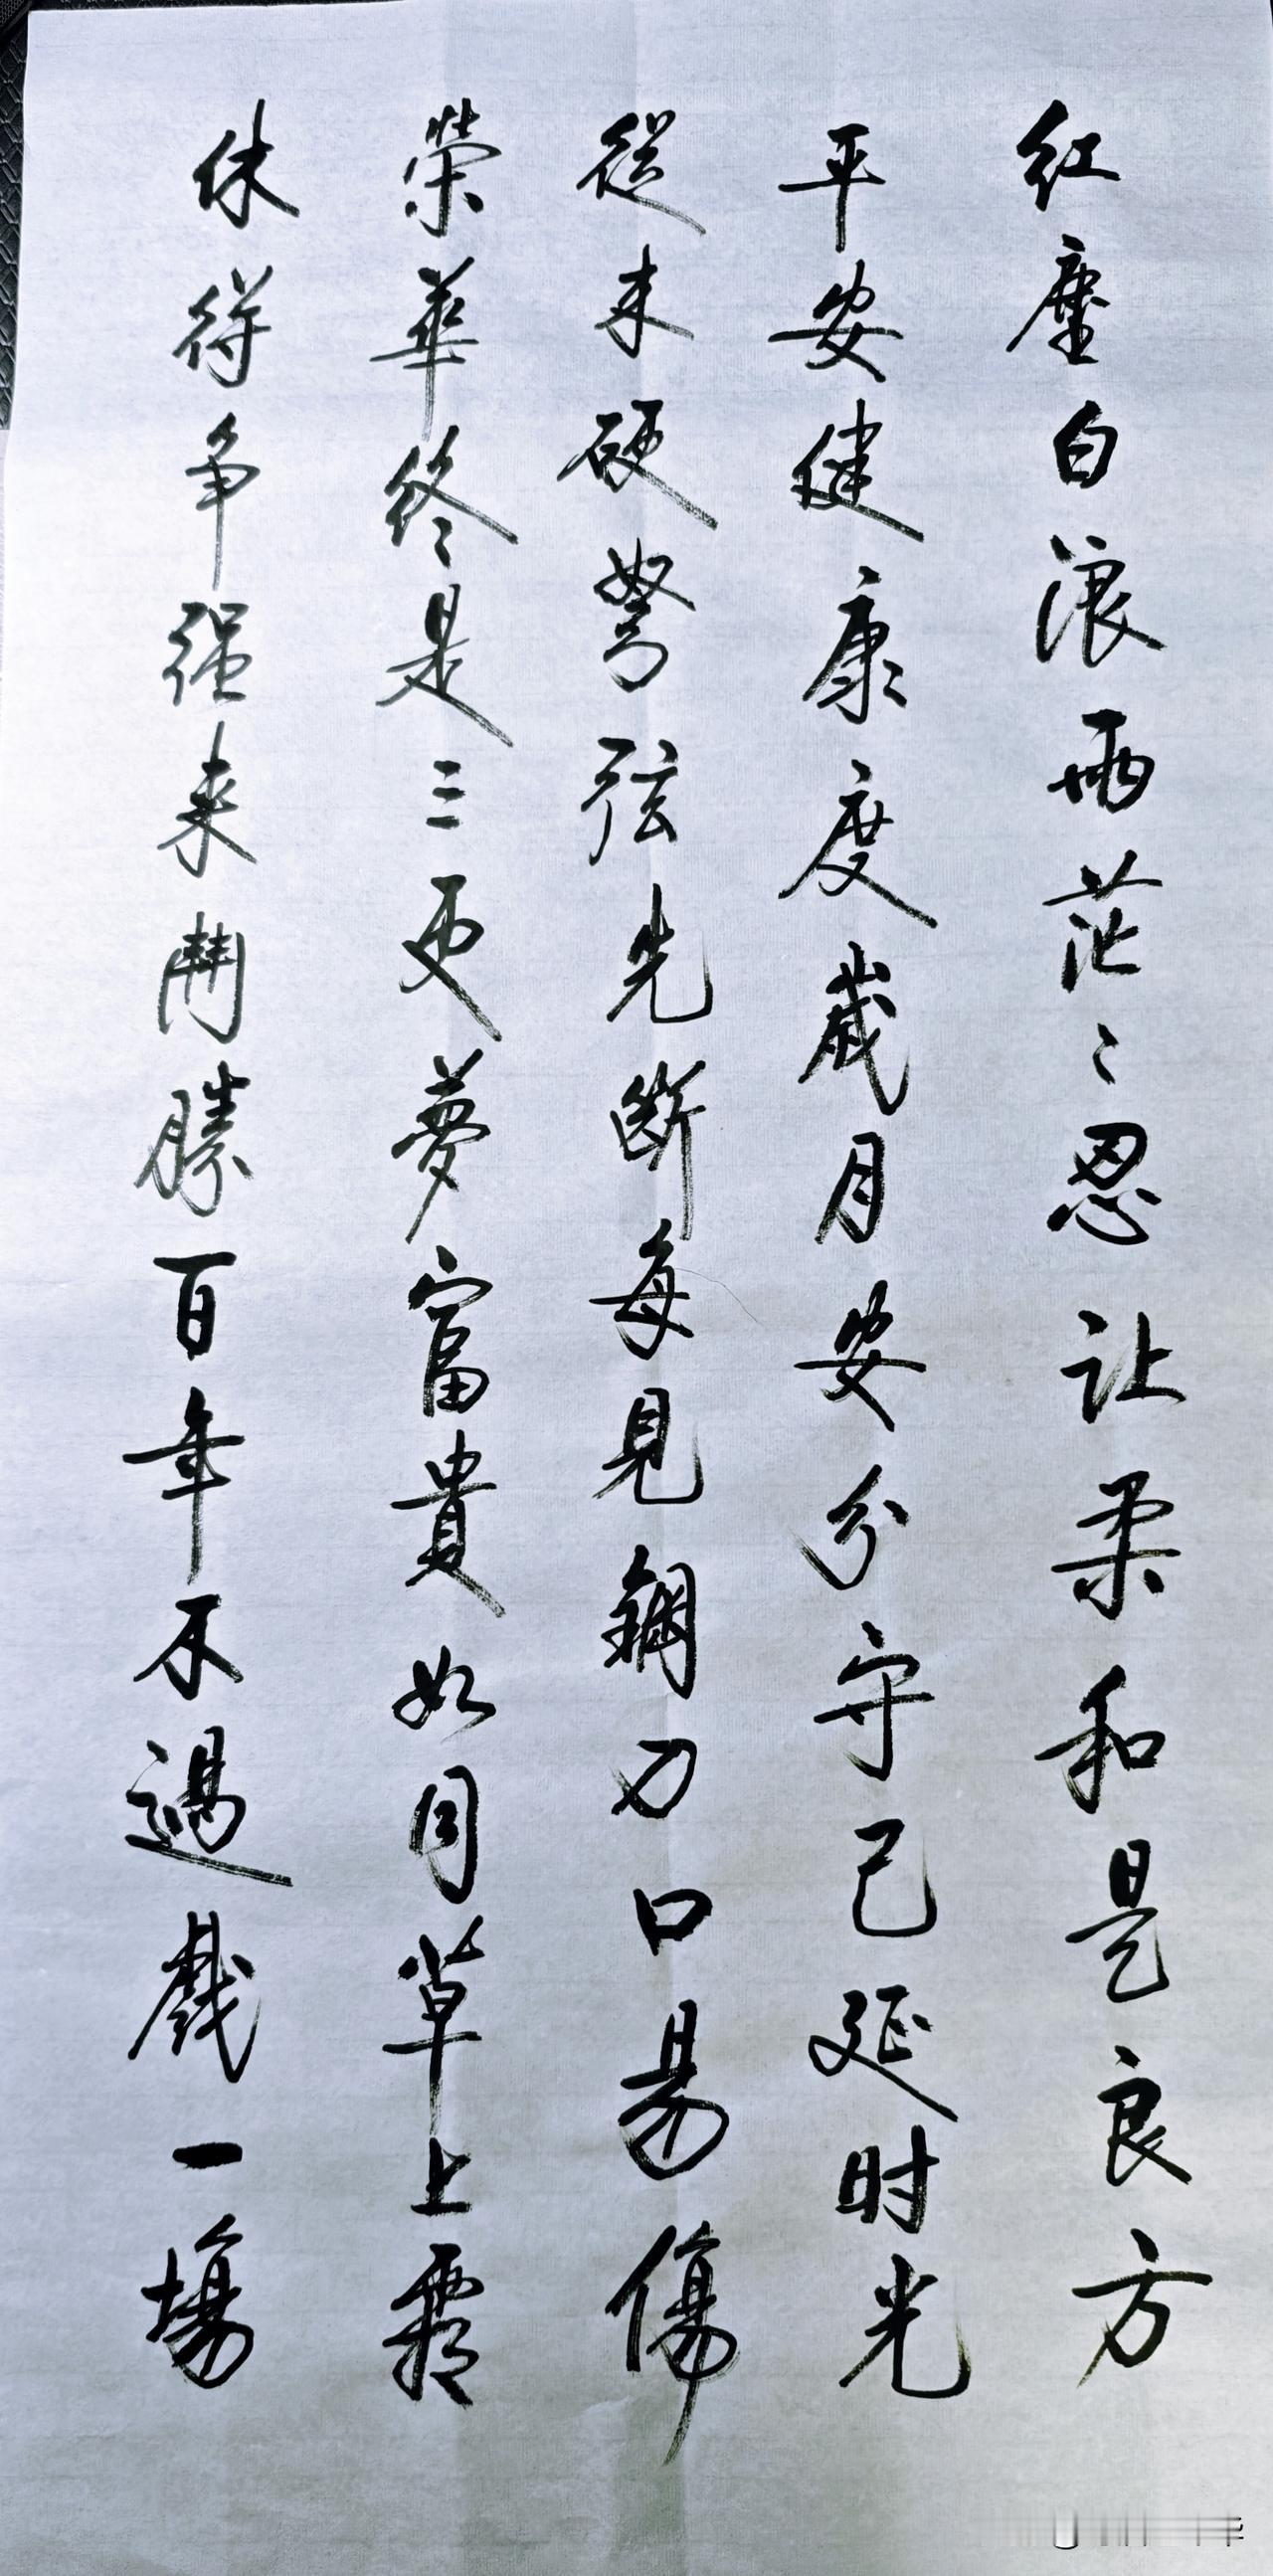 红塵白浪兩茫〻忍让柔和是良方
平安健康度歲月安分守己延时光
從来硬弩弦先斷每見鋼刀口易傷
榮華終是三更夢富貴如同草上霜
休得争强来鬥勝百年不過戲一場